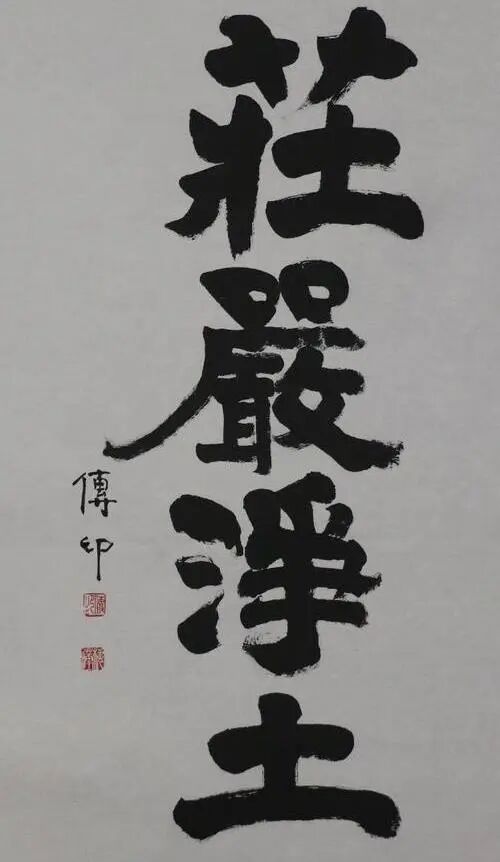 莊嚴淨土
傳印